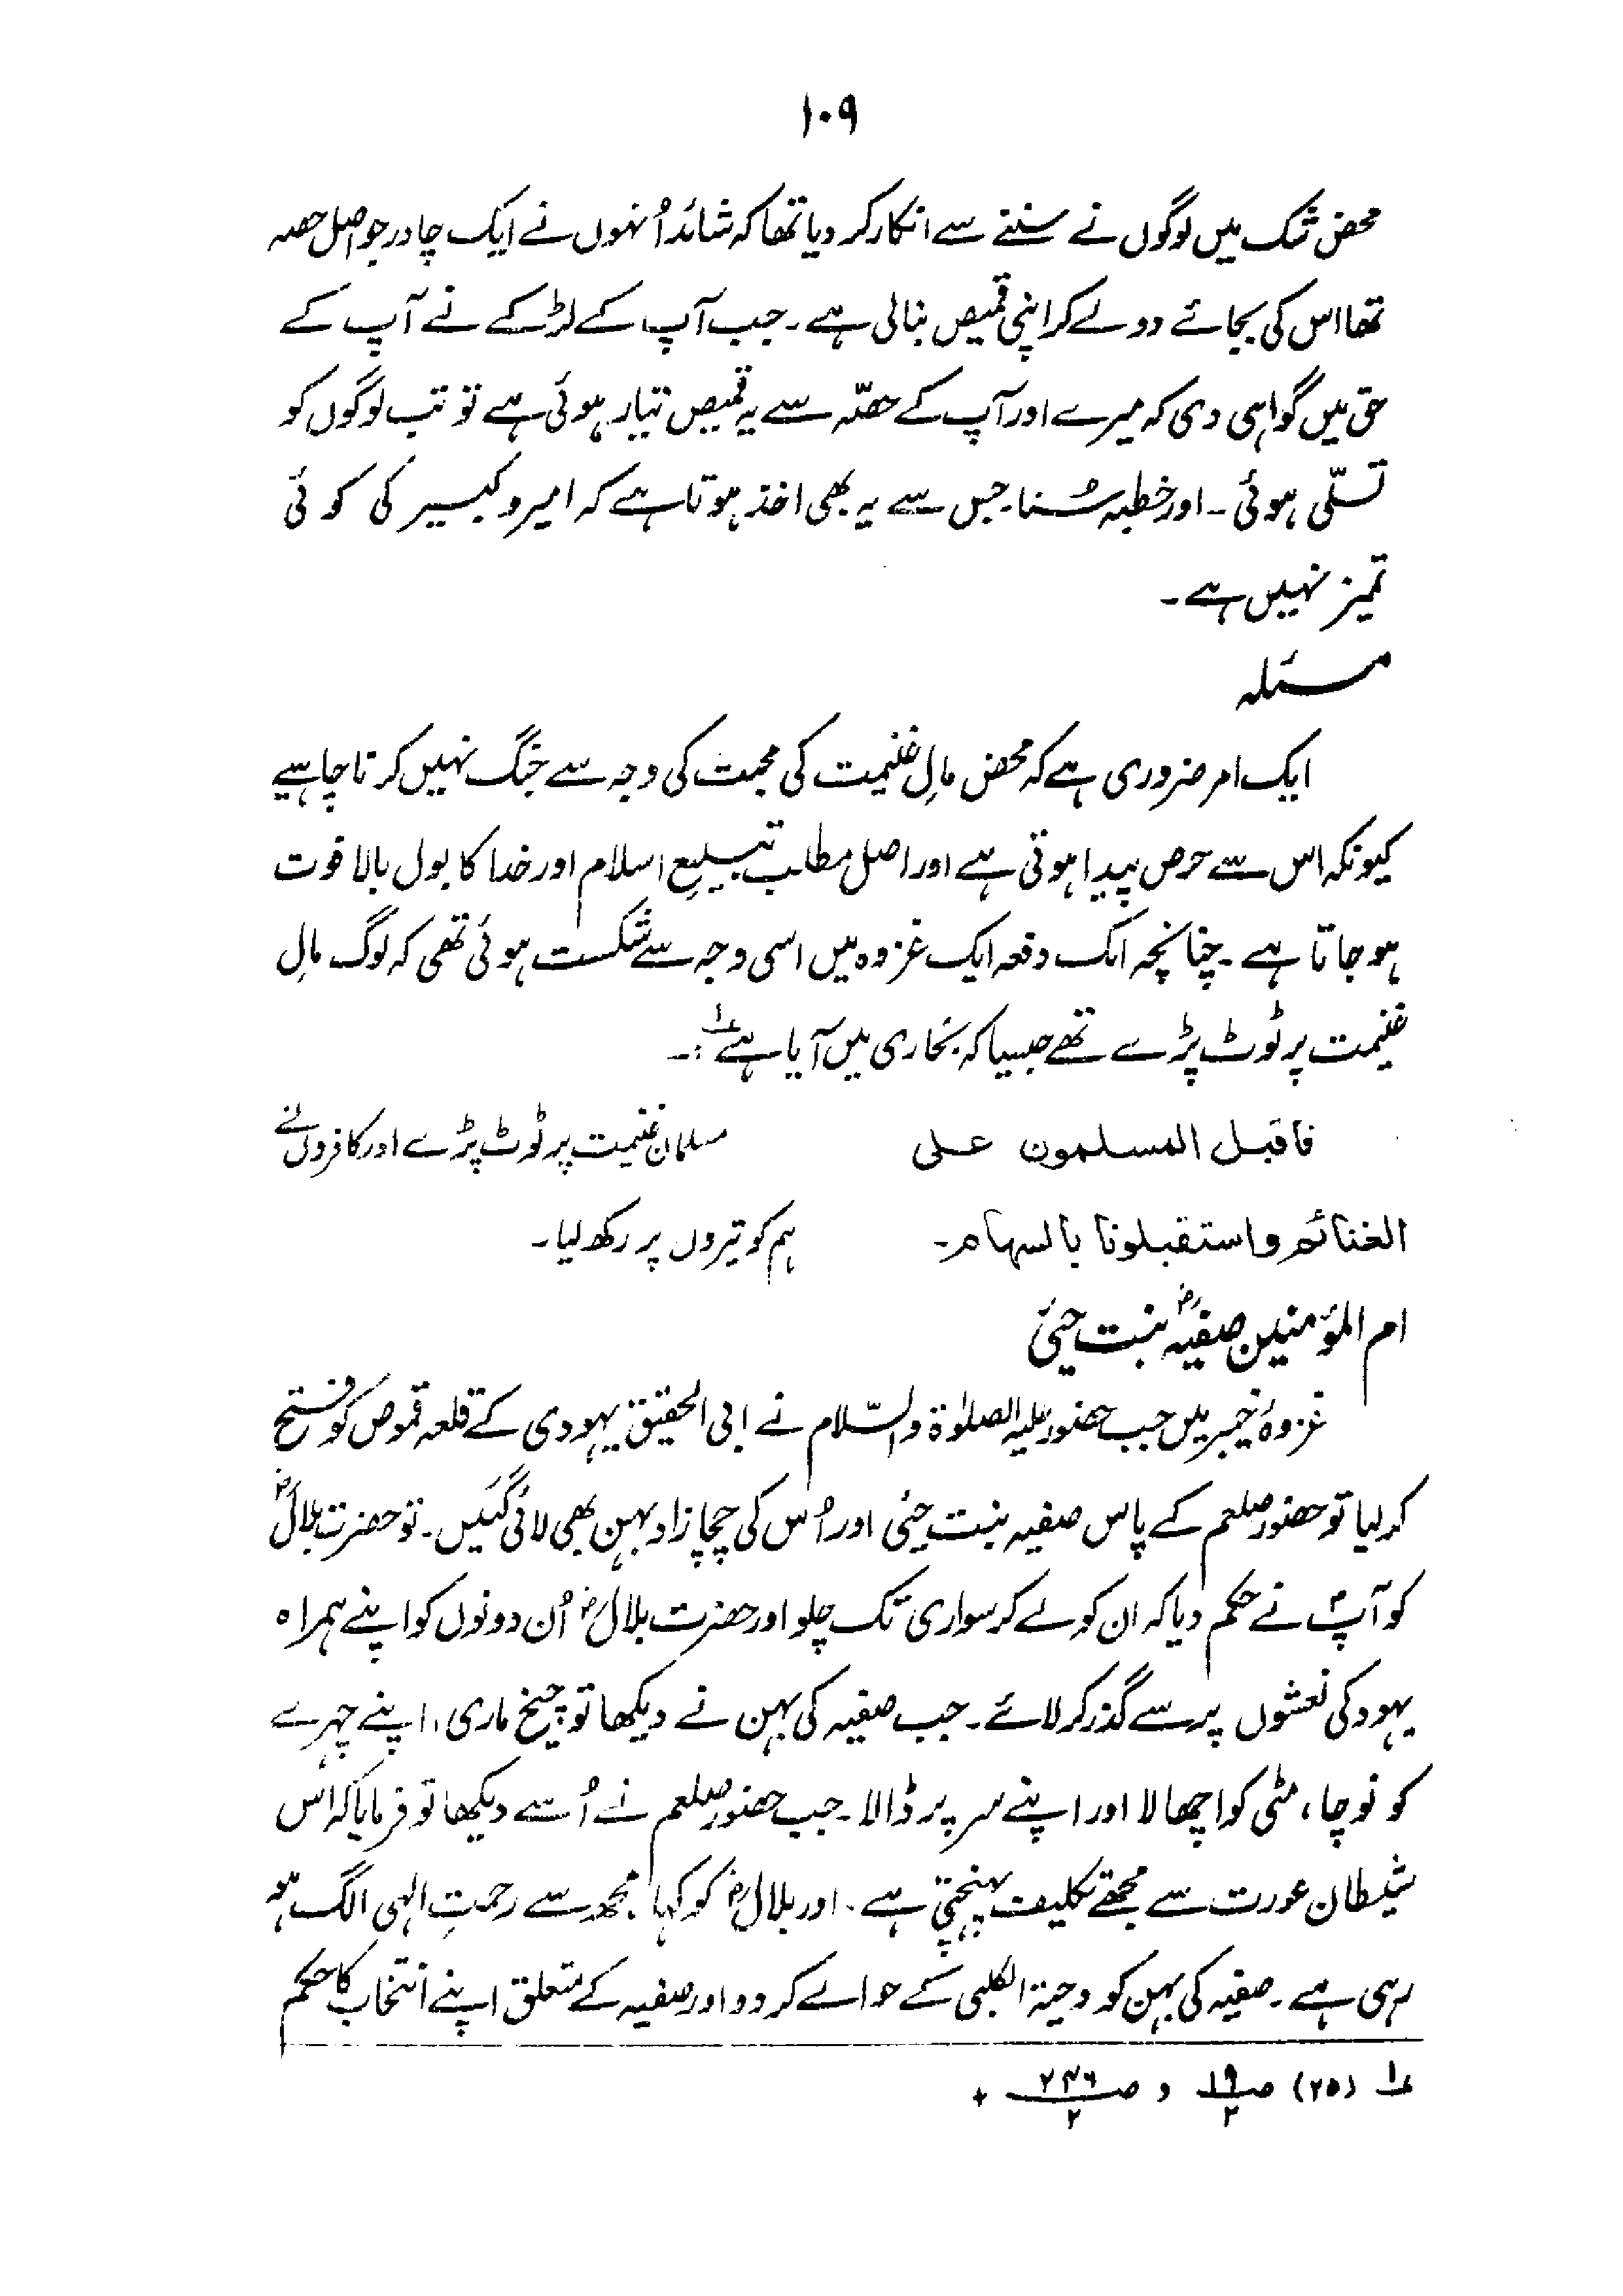 ۱۰۹
محض شک میں لوگوں نے سننے سے انکار کر دیا تھا کہ شائد اُنہوں نے ایک چادر جو اصل حصہ
تھا اس کی بجائے دو لے کر اپنی قمیص بنالی ہے۔ جب آپ کے لڑکے نے آپ کے
حق میں گواہی دی کہ میرے اور آپ کے حصّہ سے یہ قمیص تیار ہوئی ہے تو تب لوگوں کو
تسلّی ہوئی۔ اور خطبہ سُنا۔ جس سے یہ بھی اخذ ہوتا ہے کہ امیر و کبیر کی کوئی
تمیز نہیں ہے۔
مسئلہ
ایک امر ضروری ہے کہ محض مالِ غنیمت کی محبت کی وجہ سے جنگ نہیں کرنا چاہیے
کیونکہ اس سے حرص پیدا ہوتی ہے اور اصل مطلب تبلیغِ اسلام اور خدا کا بول بالا فوت
ہو جاتا ہے۔ چنانچہ ایک دفعہ ایک غزوہ میں اسی وجہ سے شکست ہوئی تھی کہ لوگ مالِ
غنیمت پر ٹوٹ پڑے تھے جیسا کہ بخاری میں آیا ہے ۱؎:۔
فاقبل المسلمون علی مسلمان غنیمت پر ٹوٹ پڑے اور کافروں نے
الغنائم واستقبلونا بالسہام۔ ہم کو تیروں پر رکھ لیا۔
ام المؤمنین صفیہؓ بنت حیَی
غزوۂ خیبر میں جب حضور علیہ الصلوٰۃ والسّلام نے ابی الحقیق یہودی کے قلعہ قموص کو فتح
کر لیا تو حضور صلعم کے پاس صفیہ بنت حیَی اور اُس کی چچا زاد بہن بھی لائی گئیں۔ تو حضرت بلالؓ
کو آپؐ نے حکم دیا کہ ان کو لے کر سواری تک چلو اور حضرت بلالؓ اُن دونوں کو اپنے ہمراہ
یہود کی نعشوں پر سے گذر کر لائے۔ جب صفیہ کی بہن نے دیکھا تو چیخ ماری، اپنے چہرے
کو نوچا، مٹی کو اچھالا اور اپنے سر پر ڈالا۔ جب حضور صلعم نے اُسے دیکھا تو فرمایا کہ اس
شیطان عورت سے مجھے تکلیف پہنچتی ہے۔ اور بلالؓ کو کہا مجھ سے رحمتِ الٰہی الگ ہو
رہی ہے۔ صفیہ کی بہن کو دحیۃ الکلبی کے حوالے کر دو اور صفیہ کے متعلق اپنے انتخاب کا حکم
۱؎ (۲۵) ص ۱۹/۲ و ص ۲۴۶/۲ +